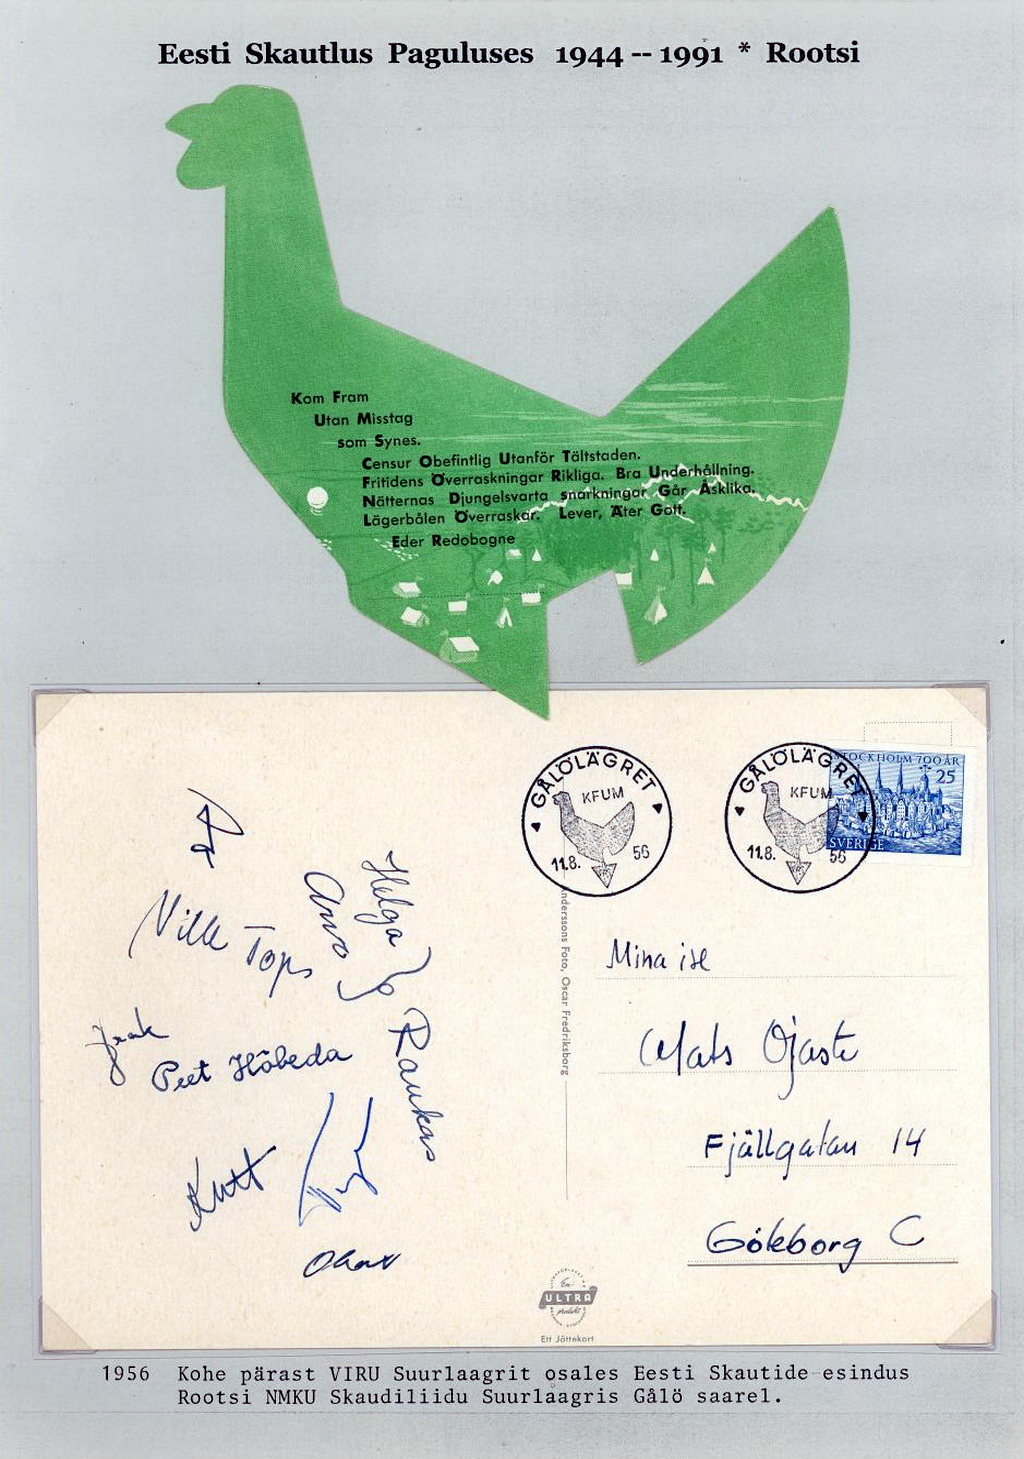 Eesti Skautlus Paguluses 1944 -- 1991 * Rootsi
Kom Fram
Utan Misstag
som Synes.
Censur Obefintlig Utanför Tältstaden.
Fritidens Överraskningar Rikliga. Bra Underhållning.
Nätternas Djungelsvarta snarkningar Går Åsklika.
Lägerbålen Överraskar. Lever, Äter Gott.
Eder Redobogne
GÅLÖLÄGRET
KFUM
11.8. 56
GÅLÖLÄGRET
KFUM
11.8. 56
STOCKHOLM 700 ÅR
25
SVERIGE
Helga
Arvo
Raukas
Ville Tops
Peet Hõbeda
Kutt
Anderssons Foto, Oscar Fredriksborg
Mina ise
Mats Ojaste
Fjällgatan 14
Göteborg C
En
ULTRA
produkt
Ett Jättekort
1956 Kohe pärast VIRU Suurlaagrit osales Eesti Skautide esindus
Rootsi NMKU Skaudiliidu Suurlaagris Gålö saarel.